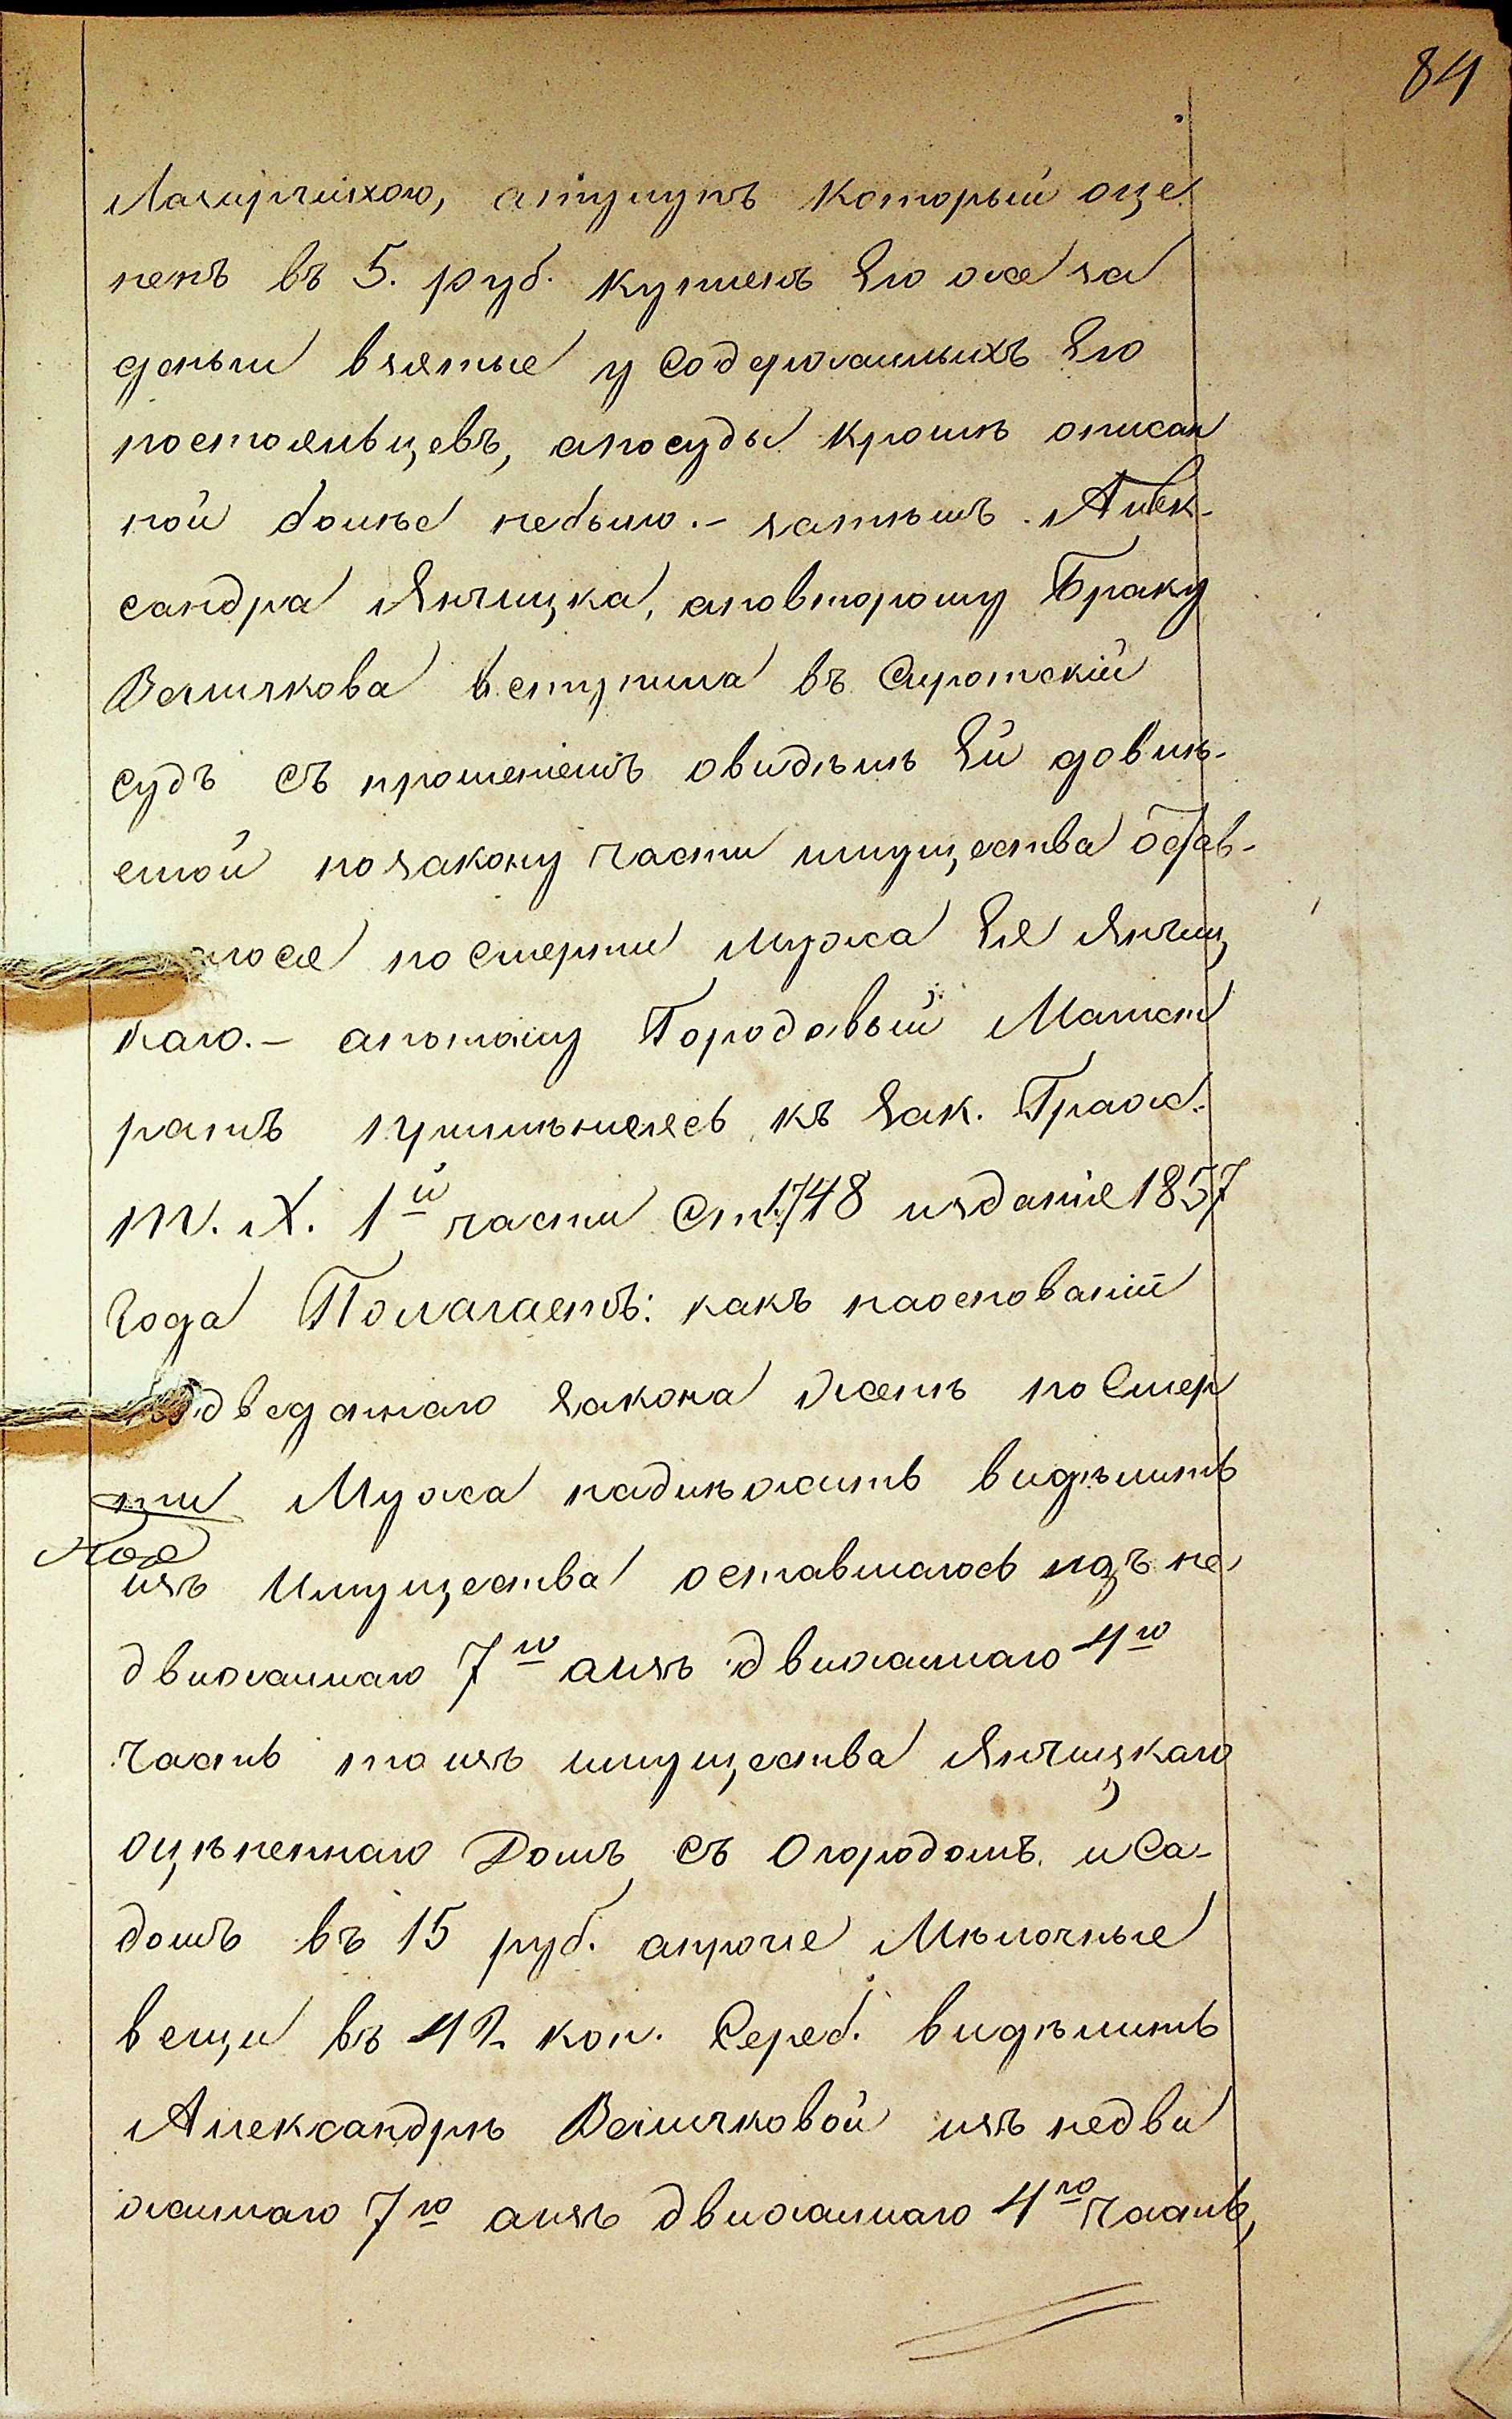 84
атулупъ который оце
ненъ въ 5. руб. купленъ Его же за
деньги взятые у содержимыхъ Его
постояльцевъ, апосуды кромѣ описан
ной больѣе небыло. – затѣмъ Алек-
сандра Янчицка, аповторому Браку
Величкова вступила въ Сиротскій
судъ съ прошеніемъ овидѣлѣ Ей довлѣ-
емой позакону части имущества остав-
лося посмерти мужа Ея Янчиц
каго. – апотому Городовый Магист
ратъ примѣняясь къ Зак. Граж.
т. X. 1й части Ст. 1748 изданіе 1857
Года Полагаетъ: какъ наоснованіи
подведеннаго Закона женѣ посмер
ти Мужа надлѣжитъ видѣлить
изъ Имущества оставшагось изъ не
движимаго 7ю аизъ движимаго 4ю
часть то изъ имущества Янчицкаго
оцѣненнаго Домъ съ Огородомъ и Са-
домъ въ 15 руб. апрочіе Мѣлочные
вещи въ 42 коп. Сереб. видѣлить
Александрѣ Величковой изъ недви
жимаго 7ю аизъ движимаго 4ю часть,